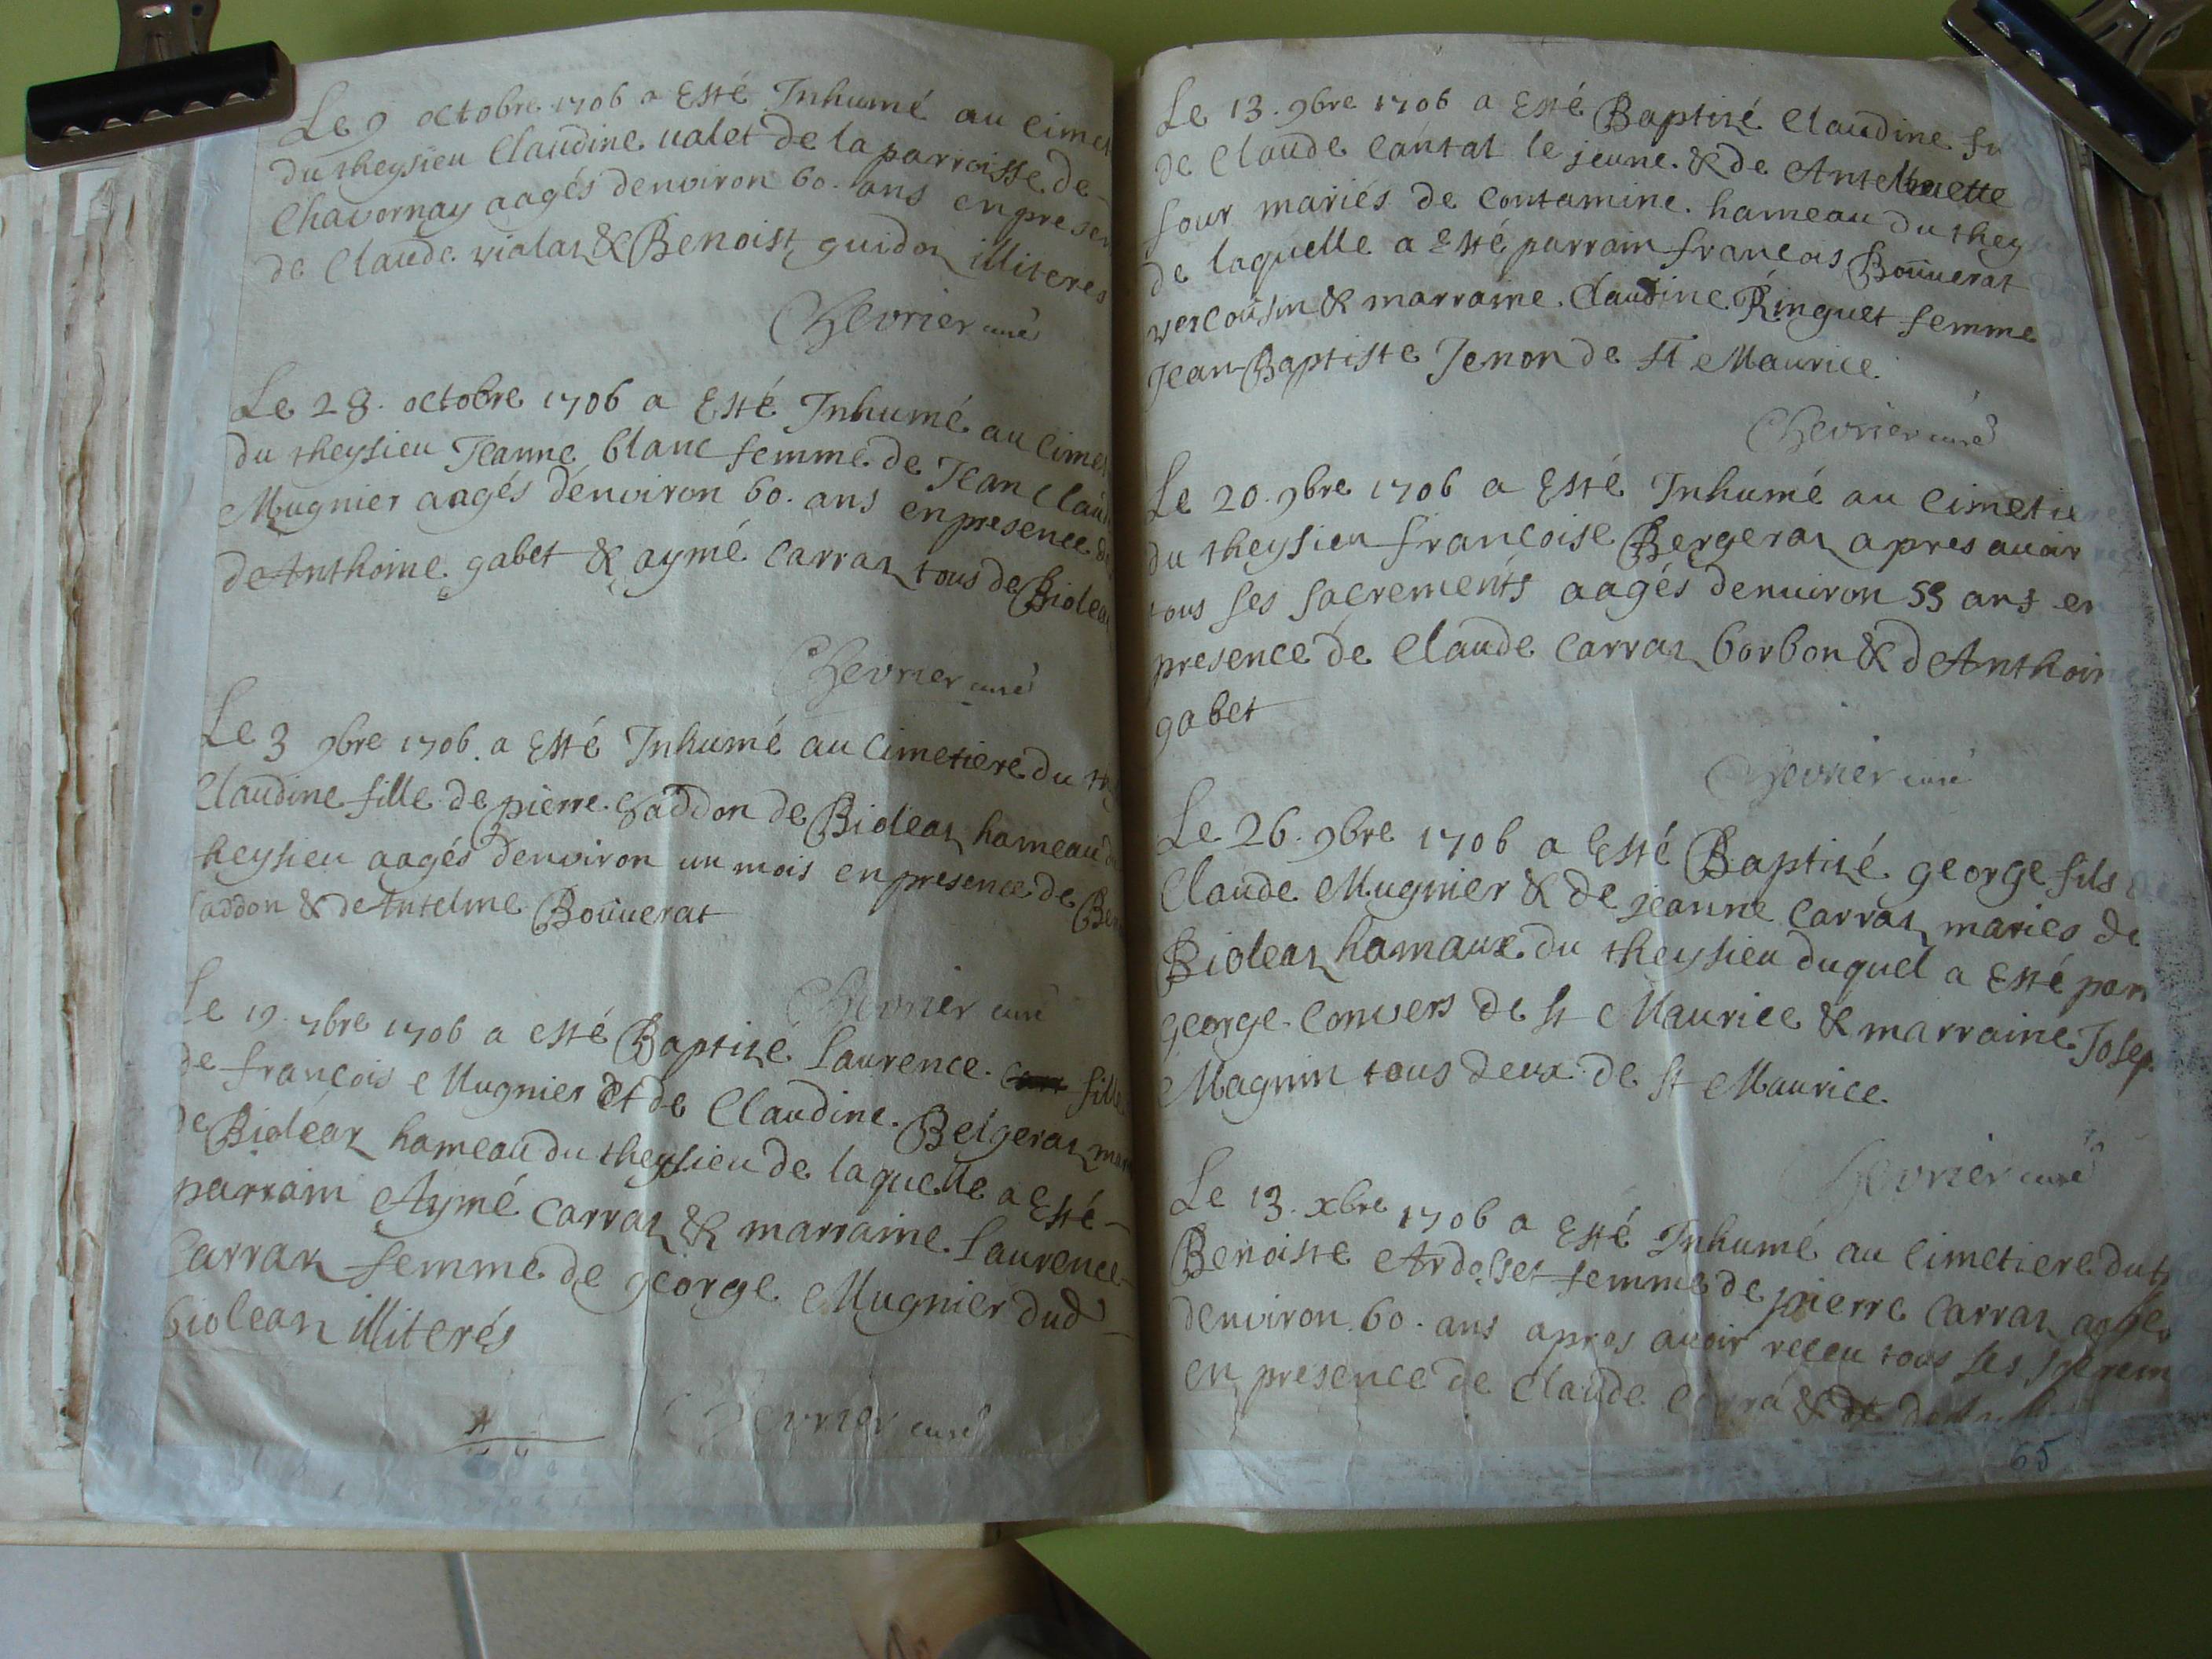 Le 9 octobre 1706 a Esté Inhumé au cimet
du theysieu Claudine valet de la parroisse de
Chavornay aagés denviron 60. ans en presen
de Claude violaz & Benoist guidoz illiteres
Chevrier curé
Le 28. octobre 1706 a Esté Inhumé au cimet
du theysieu Jeanne blanc femme de Jean Claud
Mugnier aagés denviron 60. ans en presence
de Anthoine gabet & aymé Carraz tous de Bioleaz
Chevrier curé
Le 3 9bre 1706. a Esté Inhumé au Cimetiere du th
Claudine fille de pierre Saddon de Bioleaz hameau d
theysieu aagés denviron un mois en presence de Ben
Saddon & de Antelme Bouuerat
Chevrier curé
Le 19. 7bre 1706 a esté Baptizé laurence fille
de francois Mugnier et de Claudine. Belgeraz mar
de Bioleaz hameau du theysieu de laquelle a Esté
parrain Aymé Carraz & marraine laurence
Carraz femme de george Mugnier dud
bioleaz illiterés
Chevrier curé
Le 13. 9bre 1706 a Esté Baptizé Claudine fi
de Claude Cantat le jeune & de Antelmette
sour mariés de Contamine hameau du they
de laquelle a Esté parrain francois Bouuerat
vercousin & marraine Claudine Ringuet femme
Jean-Baptiste Jenon de st Maurice.
Chevrier curé
Le 20. 9bre 1706 a Esté Inhumé au Cimetie
du theysieu francoise Bergeraz apres auoir
tous ses sacrements aagés denuiron 55 ans en
presence de Claude Carraz borbon & de Anthoin
gabet
Chevrier curé
Le 26. 9bre 1706 a Esté Baptizé george fils
Claude Mugnier & de jeanne Carraz maries de
Bioleaz hamaux du theysieu duquel a Esté parr
george Convers de st Maurice & marraine Josep
Magnin tous deux de st Maurice.
Chevrier curé
Le 13. xbre 1706 a Esté Inhumé au Cimetiere du t
Benoiste Ardosset femme de pierre Carraz
denviron 60. ans apres auoir receu tous ses
en presence de Claude &
65